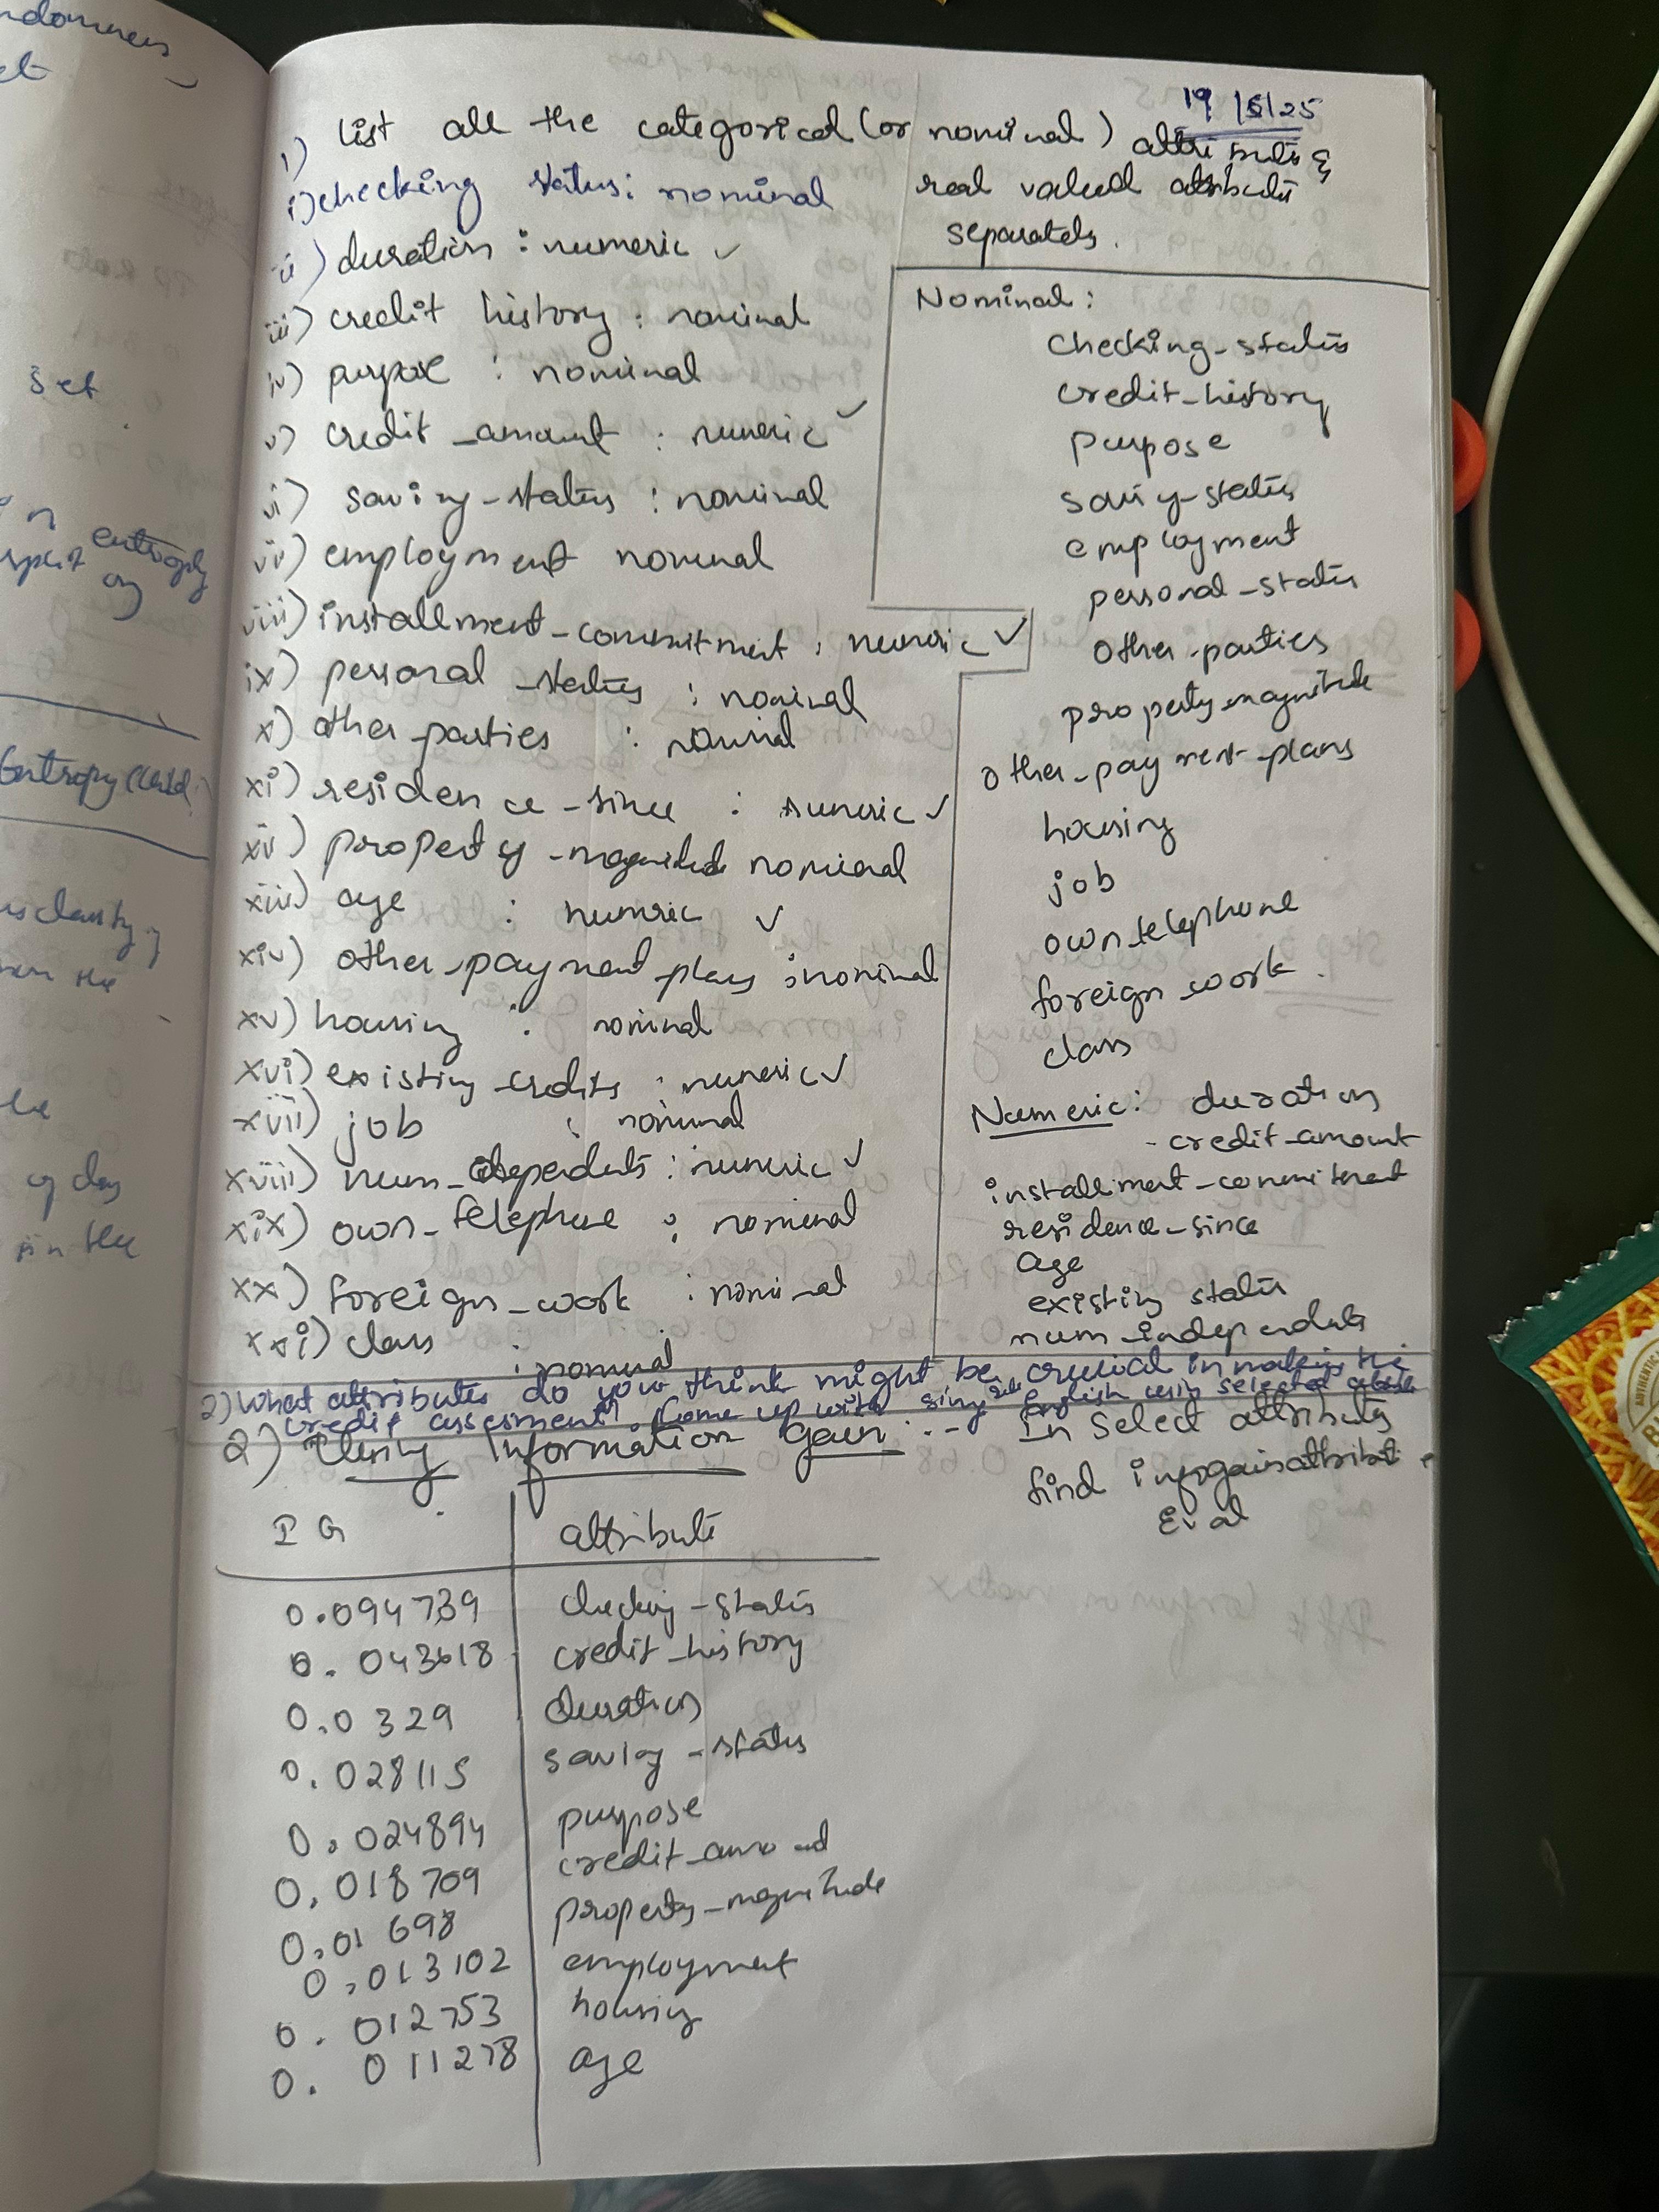 ndomness
et
set
in
split entropy
on
Entropy (
is clarity
the
of
in the
19/5/25
1) List all the categorical (or nominal) attributes &
real valued attributes
separately.
i) checking status: nominal
ii) duration : numeric ✓
iii) credit history : nominal
iv) purpose : nominal
v) credit_amount : numeric ✓
vi) saving-status : nominal
vii) employment nominal
viii) installment-commitment : numeric ✓
ix) personal_status : nominal
x) other parties : nominal
xi) residence-since : numeric ✓
xii) property-magnitude nominal
xiii) age : numeric ✓
xiv) other-payment plans : nominal
xv) housing : nominal
xvi) existing-credits : numeric ✓
xvii) job : nominal
xviii) num_dependents : numeric ✓
xix) own-telephone : nominal
xx) foreign_work : nominal
xxi) class : nominal
Nominal:
checking-status
credit-history
purpose
saving-status
employment
personal-status
other-parties
property-magnitude
other-payment-plans
housing
job
own_telephone
foreign work.
class
Numeric: duration
- credit-amount
installment-commitment
residence-since
age
existing status
num-independents
2) What attributes do you think might be crucial in making the
credit assesment? Come up with simple English using selected
2) Using Information Gain :--
In select attributes
find infogainattribute
Eval
IG attribute
0.094739 checking-status
0.043618 credit_history
0.0329 duration
0.028115 saving-status
0.024894 purpose
0.018709 credit_amount
0.01698 property-magnitude
0.013102 employment
0.012753 housing
0.011278 age